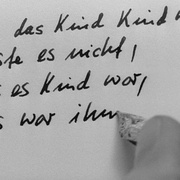 das Kind Kind
ste es nicht,
es Kind war,
s war ihm